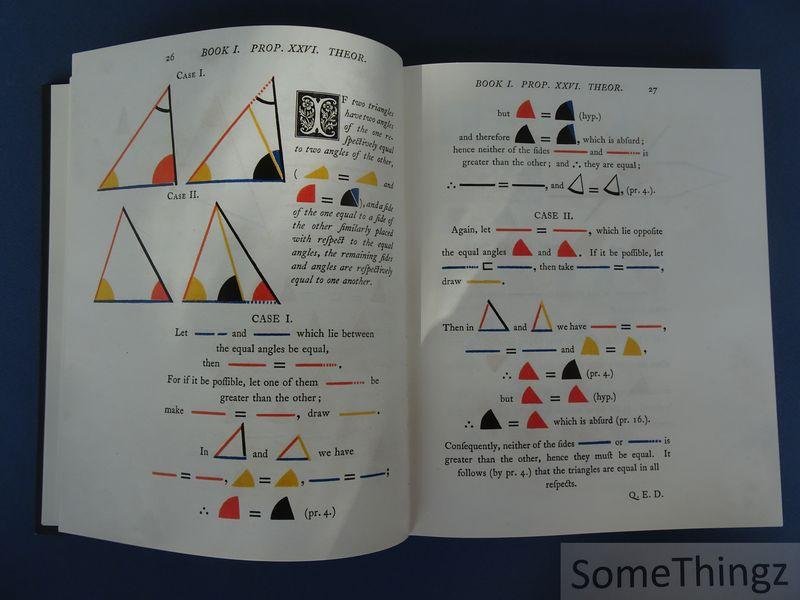 26 BOOK I. PROP. XXVI. THEOR.
CASE I.
IF two triangles
have two angles
of the one re-
ſpectively equal
to two angles of the other,
( = and
= ), and a ſide
of the one equal to a ſide of
the other ſimilarly placed
with reſpect to the equal
angles, the remaining ſides
and angles are reſpectively
equal to one another.
CASE II.
CASE I.
Let and which lie between
the equal angles be equal,
then = .
For if it be poſſible, let one of them be
greater than the other ;
make = , draw .
In and we have
= , = , = ;
∴ = (pr. 4.)
BOOK I. PROP. XXVI. THEOR. 27
but = (hyp.)
and therefore = , which is abſurd ;
hence neither of the ſides and is
greater than the other ; and ∴ they are equal ;
∴ = , and = , (pr. 4.).
CASE II.
Again, let = , which lie oppoſite
the equal angles and . If it be poſſible, let
⊏ , then take = ,
draw .
Then in and we have = ,
= and = ,
∴ = (pr. 4.)
but = (hyp.)
∴ = which is abſurd (pr. 16.).
Conſequently, neither of the ſides or is
greater than the other, hence they muſt be equal. It
follows (by pr. 4.) that the triangles are equal in all
reſpects.
Q. E. D.
SomeThingz